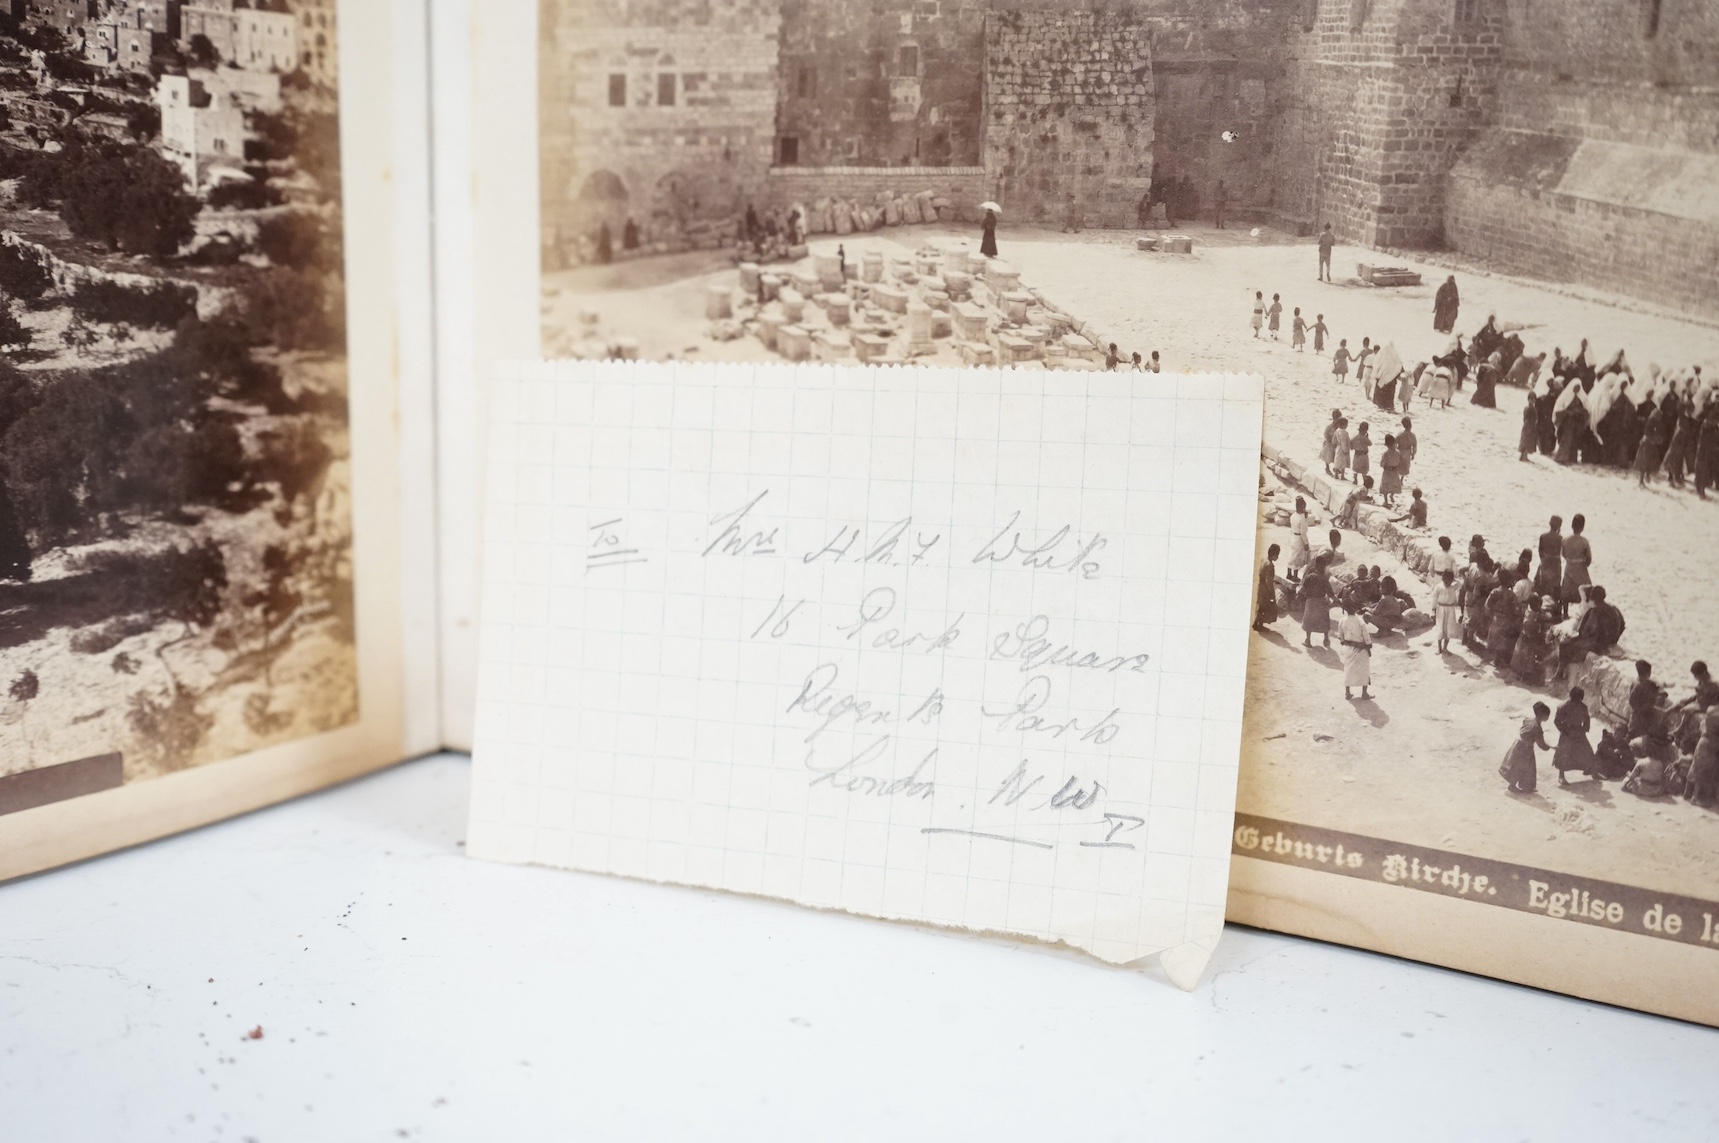 To Mrs H.M.F. White
16 Park Square
Regents Park
London. N W
I
Geburts Kirche. Eglise de la